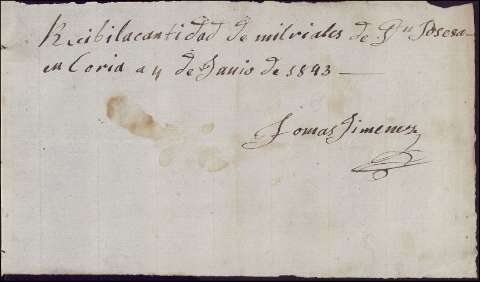 Recibi la cantidad de mil riales de Dn
en Coria a 4 de Junio de 1843
Tomas Jimenez